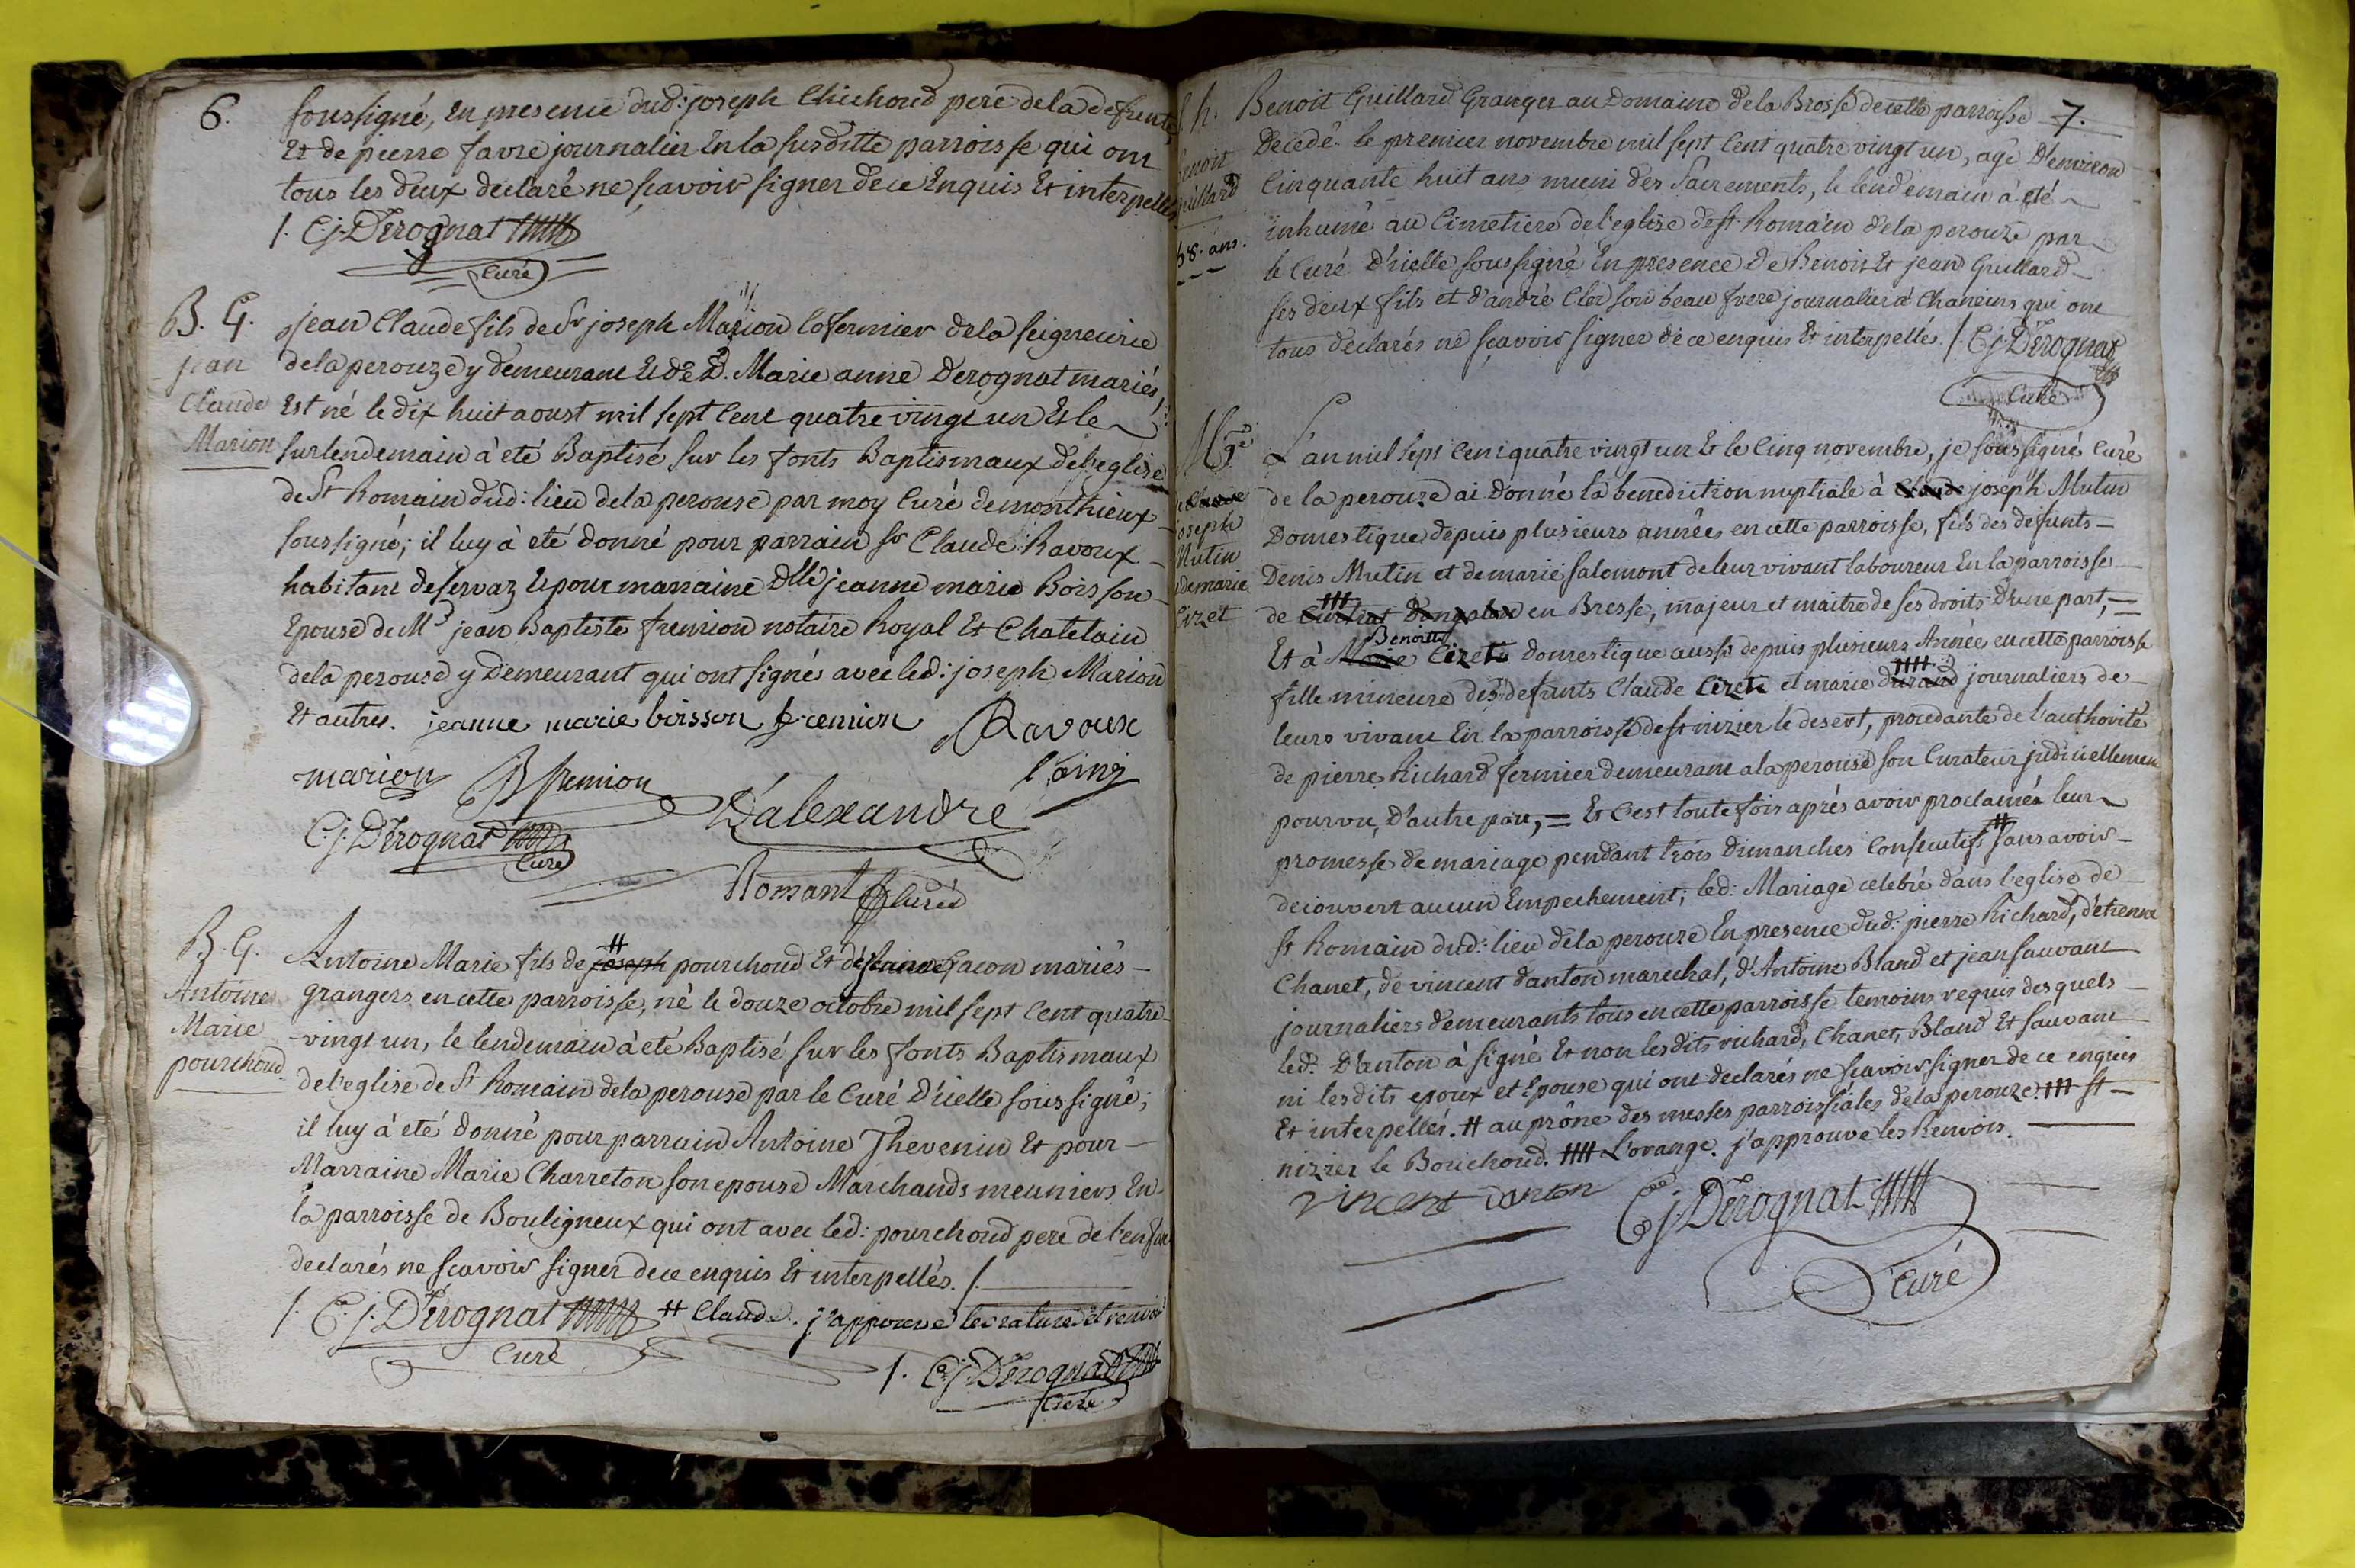 6.
soussigné, En presence dud: joseph Chichoud pere dela defunte,
Et de pierre favre journalier En la susditte parroisse qui ont
tous les deux declaré ne sçavoir signer de ce Enquis Et interpellés
/. C.j. Derognat
Curé
B. G.
jean
Claude
Marion
jean Claude fils de Sr joseph Marion Cofermier dela seigneurie
dela perouze y demeurant Et de D. Marie anne Derognat mariés,
Est né le dix huit aoust mil sept Cent quatre vingt un Et le
surlendemain à eté Baptisé sur les fonts Baptismaux de l'eglise
de St Romain dud: lieu dela perouse par moy Curé demonthieux
soussigné; il luy à eté donné pour parrain Sr Claude Ravoux
habitant de servaz Et pour marraine Dlle jeanne marie Boisson
Epouse de Me jean Baptiste fremion notaire Royal Et Chatelain
dela perouse y Demeurant qui ont signés avec led: joseph Marion
Et autres. jeanne marie boisson fremion Ravoux
l'ainé
marion JB fremion
D'alexandre
C.j. Derognat
Curé
Romant Curé
B. G.
Antoine
Marie
pourchoud
Antoine Marie fils de # joseph pourchoud Et de jeanne Gacon mariés
grangers en cette parroisse, né le douze octobre mil sept Cent quatre
vingt un, le lendemain à eté Baptisé sur les fonts Baptismaux
de l'eglise de St Romain dela perouse par le Curé D'icelle soussigné;
il luy à eté donné pour parrain Antoine Thevenin Et pour
Marraine Marie Charreton son epouse Marchands meuniers En
la parroisse de Bouligneux qui ont avec led: pourchoud pere de l'enfant
declarés ne sçavoir signer de ce enquis Et interpellés. /.
/. C.j. Derognat # Claude. j'approuve les rature et renvoi
Curé
/. C.j. Derognat
Curé
7.
Benoit
Guillard
58. ans.
Benoit Guillard Granger au Domaine dela Brosse de cette parroisse
Decedé le premier novembre mil sept Cent quatre vingt un, agé D'environ
Cinquante huit ans muni des Sacrements, le lendemain à eté
inhumé au Cimetiere de l'eglise de St Romain dela perouze par
le Curé D'icelle soussigné En presence de Benoit Et jean Guillard
ses deux fils et d'andré Cler son beau frere journalier à Chaneins qui ont
tous declarés ne sçavoir signer de ce enquis Et interpellés. /. C.j. Derognat
Curé
Mge
Claude
joseph
Mutin
Et de marie
Cizet
L'an mil sept Cent quatre vingt un Et le Cinq novembre, je soussigné Curé
de la perouze ai donné la benediction nuptiale à Claude joseph Mutin
Domestique depuis plusieurs années en cette parroisse, fils des defunts
Denis Mutin et de marie salomont de leur vivant laboureur En la parroisse
de ### en Bresse, majeur et maitre de ses droits d'une part,
Benoitte
Et à Marie Cizet domestique aussi depuis plusieurs Année en cette parroisse
fille mineure des defunts Claude Cizet et marie #### durand journaliers de
leurs vivant En la parroisse de st nizier le desert, procedante de l'authorité
de pierre Richard fermier demeurant a la perouse son Curateur judiciellement
pourvu, D'autre part, = Et C'est toute fois après avoir proclamés leur
promesse de mariage pendant trois dimanches Consecutifs # sans avoir
decouvert aucun Empechement; led: Mariage celebré dans l'eglise de
St Romain dud: lieu dela perouze En presence dud: pierre Richard, d'etienne
Chanet, de vincent danton marechal, d'Antoine Bland et jean sauvant
journaliers demeurants tous en cette parroisse temoins requis desquels
led: Danton à signé Et non lesdits richard, Chanet, Bland Et sauvant
ni lesdits epoux et Epouse qui ont declarés ne sçavoir signer de ce enquis
Et interpellés. # au prône des messes parroissiales dela perouze. ### st
nizier le Bouchoud. #### L'orange. j'approuve les Renvois.
vincent danton C.j. Derognat
Curé